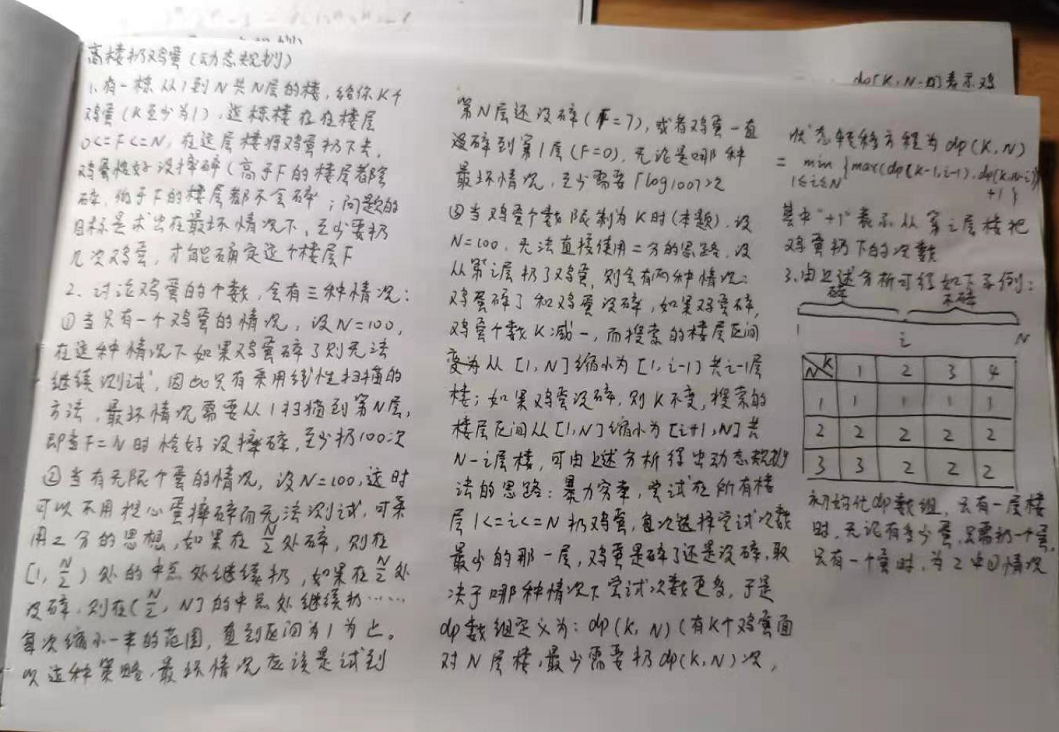 高楼扔鸡蛋(动态规划)
1.有一栋从1到N共N层的楼,给你K个
鸡蛋(K至少为1),这栋楼存在楼层
0<=F<=N,在这层楼将鸡蛋扔下去,
鸡蛋恰好没摔碎(高于F的楼层都会
碎,低于F的楼层都不会碎;问题的
目标是求出在最坏情况下,至少要扔
几次鸡蛋,才能确定这个楼层F
2.讨论鸡蛋的个数,会有三种情况:
①当只有一个鸡蛋的情况,设N=100,
在这种情况下如果鸡蛋碎了则无法
继续测试,因此只有采用线性扫描的
方法,最坏情况需要从1扫描到第N层,
即当F=N时恰好没摔碎,至少扔100次
②当有无限个蛋的情况,设N=100,这时
可以不用担心蛋摔碎而无法测试,可采
用二分的思想,如果在N/2处碎,则在
[1, N/2)处的中点处继续扔,如果在N/2处
没碎,则在(N/2, N]的中点处继续扔……
每次缩小一半的范围,直到区间为1为止。
以这种策略,最坏情况应该是试到
第N层还没碎(F=7),或者鸡蛋一直
没碎到第1层(F=0),无论是哪种
最坏情况,至少需要⌈log100⌉次
③当鸡蛋个数限制为K时(本题),设
N=100,无法直接使用二分的思路,设
从第i层扔了鸡蛋,则会有两种情况:
鸡蛋碎了和鸡蛋没碎,如果鸡蛋碎,
鸡蛋个数K减一,而搜索的楼层区间
变为从[1,N]缩小为[1,i-1]共i-1层
楼;如果鸡蛋没碎,则K不变,搜索的
楼层区间从[1,N]缩小为[i+1,N]共
N-i层楼,可由上述分析得出动态规划
法的思路:暴力穷举,尝试在所有楼
层1<=i<=N扔鸡蛋,每次选择尝试次数
最少的那一层,鸡蛋是碎了还是没碎,取
决于哪种情况下尝试次数更多,于是
dp数组定义为:dp(K,N)(有K个鸡蛋面
对N层楼,最少需要扔dp(K,N)次,
dp(K,N-i)表示鸡
状态转移方程为dp(K,N)
= min 1≤i≤N {max(dp(k-1,i-1),dp(k,n-i))
+1}
其中"+1"表示从第i层楼把
鸡蛋扔下的次数
3.由上述分析可得如下示例:
碎 不碎
1 i N
N K 1 2 3 4
1 1 1 1 1
2 2 2 2 2
3 3 2 2 2
初始化dp数组,只有一层楼
时,无论有多少蛋,只需扔一个蛋,
只有一个蛋时,为2中①情况